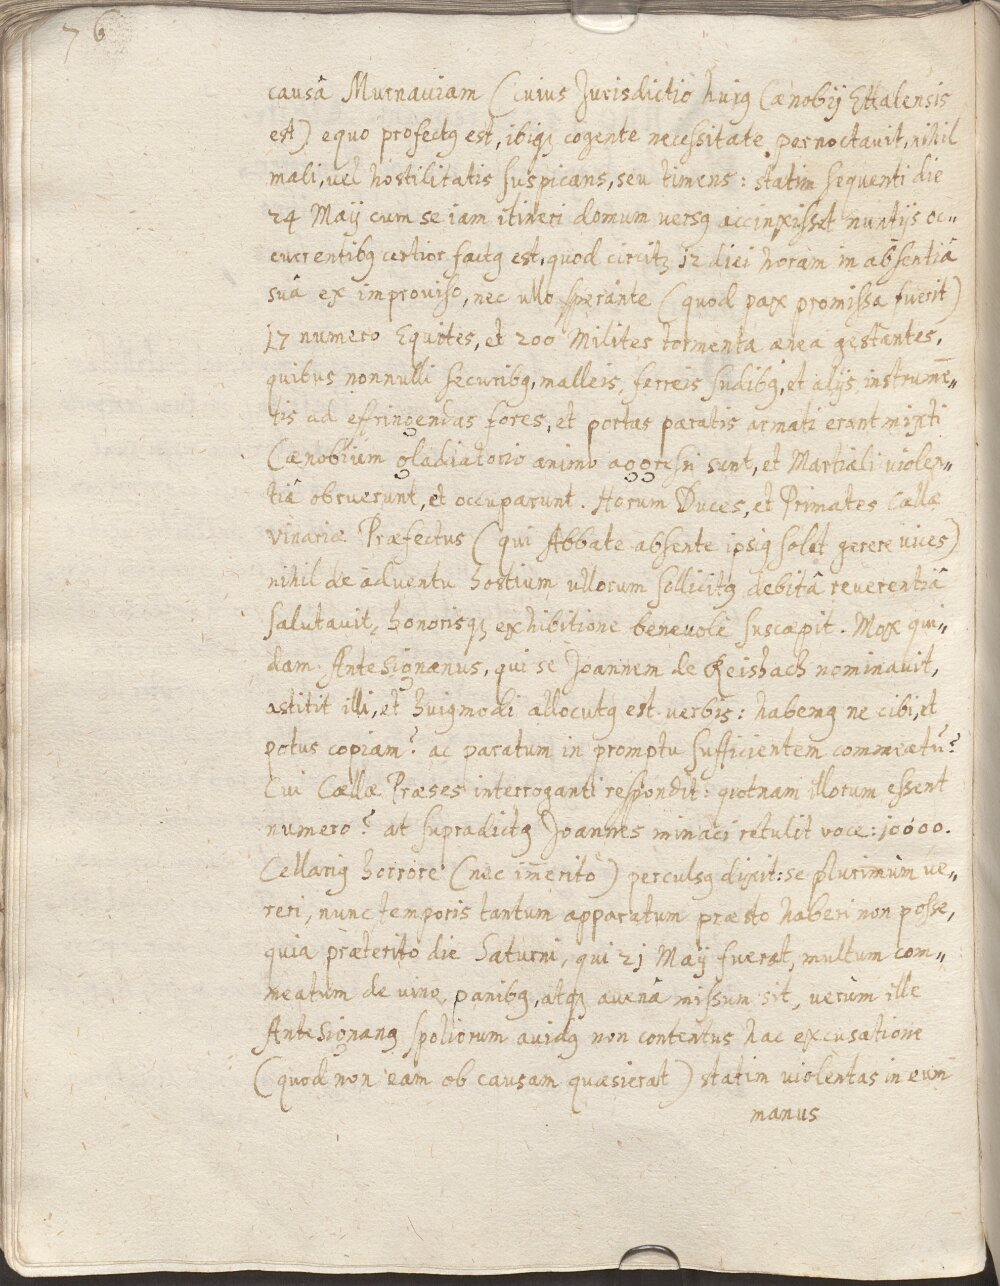 76
causâ Murnauiam (cuius Jurisdictio huiꝰ Cænobij Ettalensis
est) equo profectꝰ est, ibiqꝫ cogente necessitate pernoctauit, nihil
mali, uel hostilitatis suspicans, seu timens: statim sequenti die
24 Maij cum se iam itineri domum versꝰ accinxisset nuntijs oc„
currentibꝰ certior factꝰ est, quod circitꝫ 12 diei horam in absentiâ
suâ ex improuiso, nec ullo sperante (quod pax promissa fuerit)
17 numero Equites, et 200 Milites tormenta ænea gestantes,
quibus nonnulli securibꝰ, malleis, ferreis sudibꝰ, et alijs instrumē„
tis ad efringendas fores, et portas paratis armati erant mixti
Cænobium gladiatorio animo aggressi sunt, et Martiali violen„
tiâ obruerunt, et occuparunt. Horum Duces, et Primates Cællæ
vinariæ Præfectus (qui Abbate absente ipsiꝰ solet gerere uices)
nihil de aduentu hostium ullorum sollicitꝰ debitâ reuerentiâ
salutauit, honorisqꝫ exhibitione beneuolè suscæpit. Mox qui„
dam Antesignanus, qui se Joannem de Reishach nominauit,
astitit illi, et huiꝰmodi allocutꝰ est verbis: habemꝰ ne cibi, et
potus copiam? ac paratum in promptu sufficientem commeatū?
Cui Cællæ Præses interroganti respondit: quotnam illorum essent
numero? at supradictꝰ Joannes minaci retulit voce: 10000.
Cellariꝰ horrore (nec im̄erito) perculsꝰ dixit: se plurimùm ue„
reri, nunc temporis tantum apparatum præsto haberi non posse,
quia præterito die Saturni, qui 21 Maij fuerat, multum com„
meatum de vino, panibꝰ, atqꝫ auenâ missum sit, verùm ille
Antesignanꝰ spoliorum auidꝰ non contentus hac excusatione
(quod non eam ob causam quæsierat) statim uiolentas in eum
manus